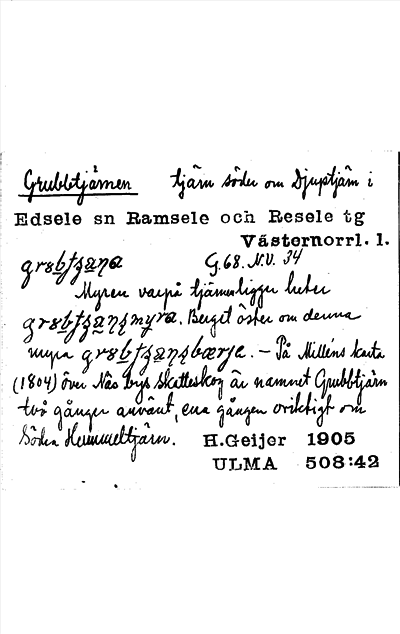 Grubbtjärnen tjärn söder om Djuptjärn i
Edsele sn Ramsele och Resele tg
Västernorrl. l.
G. 68. N.V. 34
Myren varpå tjärnen ligger heter
Berget öster om denna
myra – På Milléns karta
(1804) över Näs bys skatteskog är namnet Grubbtjärn
två gånger använt, ena gången oriktigt om
Södra Hummeltjärn. H.Geijer 1905
ULMA 508:42